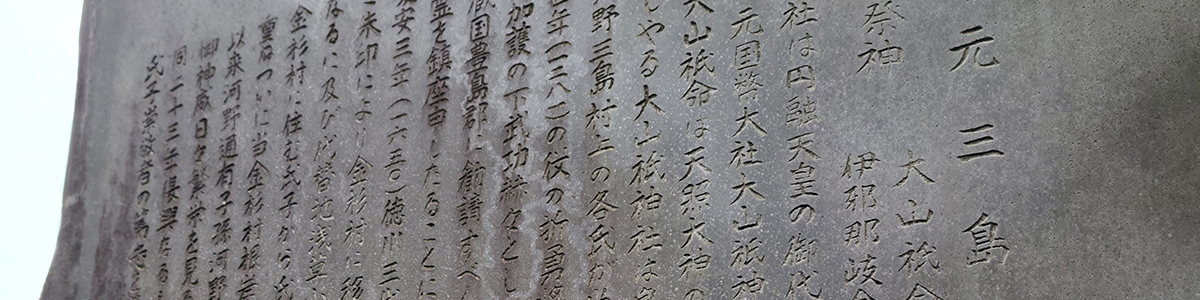 元三島
祭神 大山祇命
伊邪那岐命
社は円融天皇の御代
元国幣大社大山祇神
大山祇命は天照大神の
しやる大山祇神社は
野三島村上の各氏が
年(一二八一)の役の折勇
加護の下武功赫々とし
国豊島郡に勧請すべ
霊を鎮座申したることに
安三年(一六五〇)徳川三代
朱印により金杉村に移
なるに及び代替地浅草
金杉村に住む氏子から氏
重石ついに当金杉村根岸
以来河野通有子孫河野
御神威日々繁栄を見る
同二十三年復興なる
氏子崇敬者の